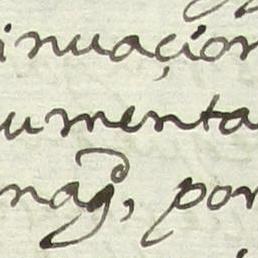 inuaçion
umenta
nag.d, por